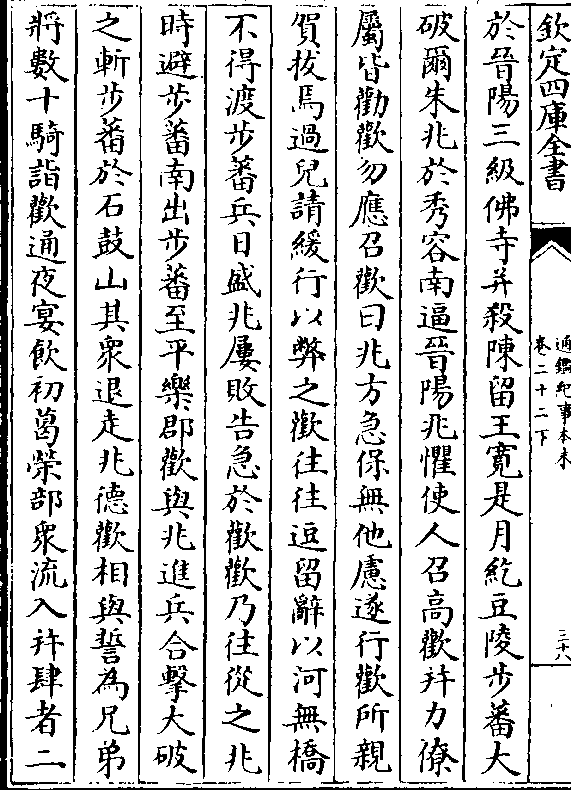 欽定四庫全書
通鑑紀事本末
卷二十二下
三十八
於晉陽三級佛寺并殺陳留王寛是月紇豆陵步蕃大
破爾朱兆於秀容南逼晉陽兆懼使人召高歡并力僚
屬皆勸歡勿應召歡曰兆方急保無他慮遂行歡所親
賀拔焉過兒請緩行以弊之歡往往逗留辭以河無橋
不得渡步蕃兵日盛兆屢敗告急於歡歡乃往從之兆
時避步蕃南出步蕃至平樂郡歡與兆進兵合擊大破
之斬步蕃於石鼓山其衆退走兆德歡相與誓為兄弟
將數十騎詣歡通夜宴飲初葛榮部衆流入并肆者二